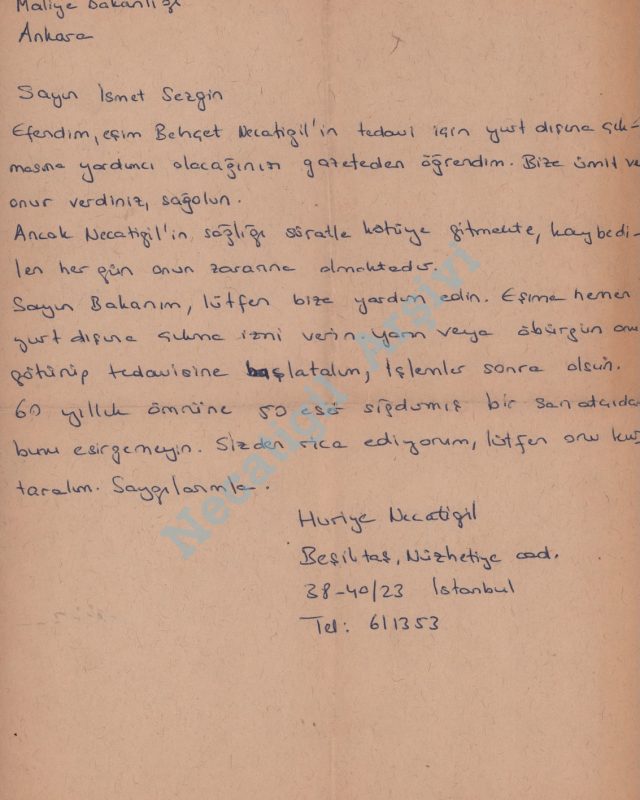 Maliye Bakanlığı
Ankara
Sayın İsmet Sezgin
Efendim, eşim Behçet Necatigil'in tedavi için yurt dışına çık-
masına yardımcı olacağınızı gazeteden öğrendim. Bize ümit ve
onur verdiniz, sağolun.
Ancak Necatigil'in sağlığı süratle kötüye gitmekte, kaybedi-
len her gün onun zararına olmaktadır.
Sayın Bakanım, lütfen bize yardım edin. Eşime hemen
yurt dışına çıkma izni verin yarın veya öbürgün onu
götürüp tedavisine başlatalım, İşlemler sonra olsun.
60 yıllık ömrüne 50 eser sığdırmış bir sanatçıdan
bunu esirgemeyin. Sizden rica ediyorum, lütfen onu kur
taralım. Saygılarımla.
Huriye Necatigil
Beşiktaş, Nüzhetiye cad.
38-40/23 İstanbul
Tel: 611353
Necatigil Arşivi